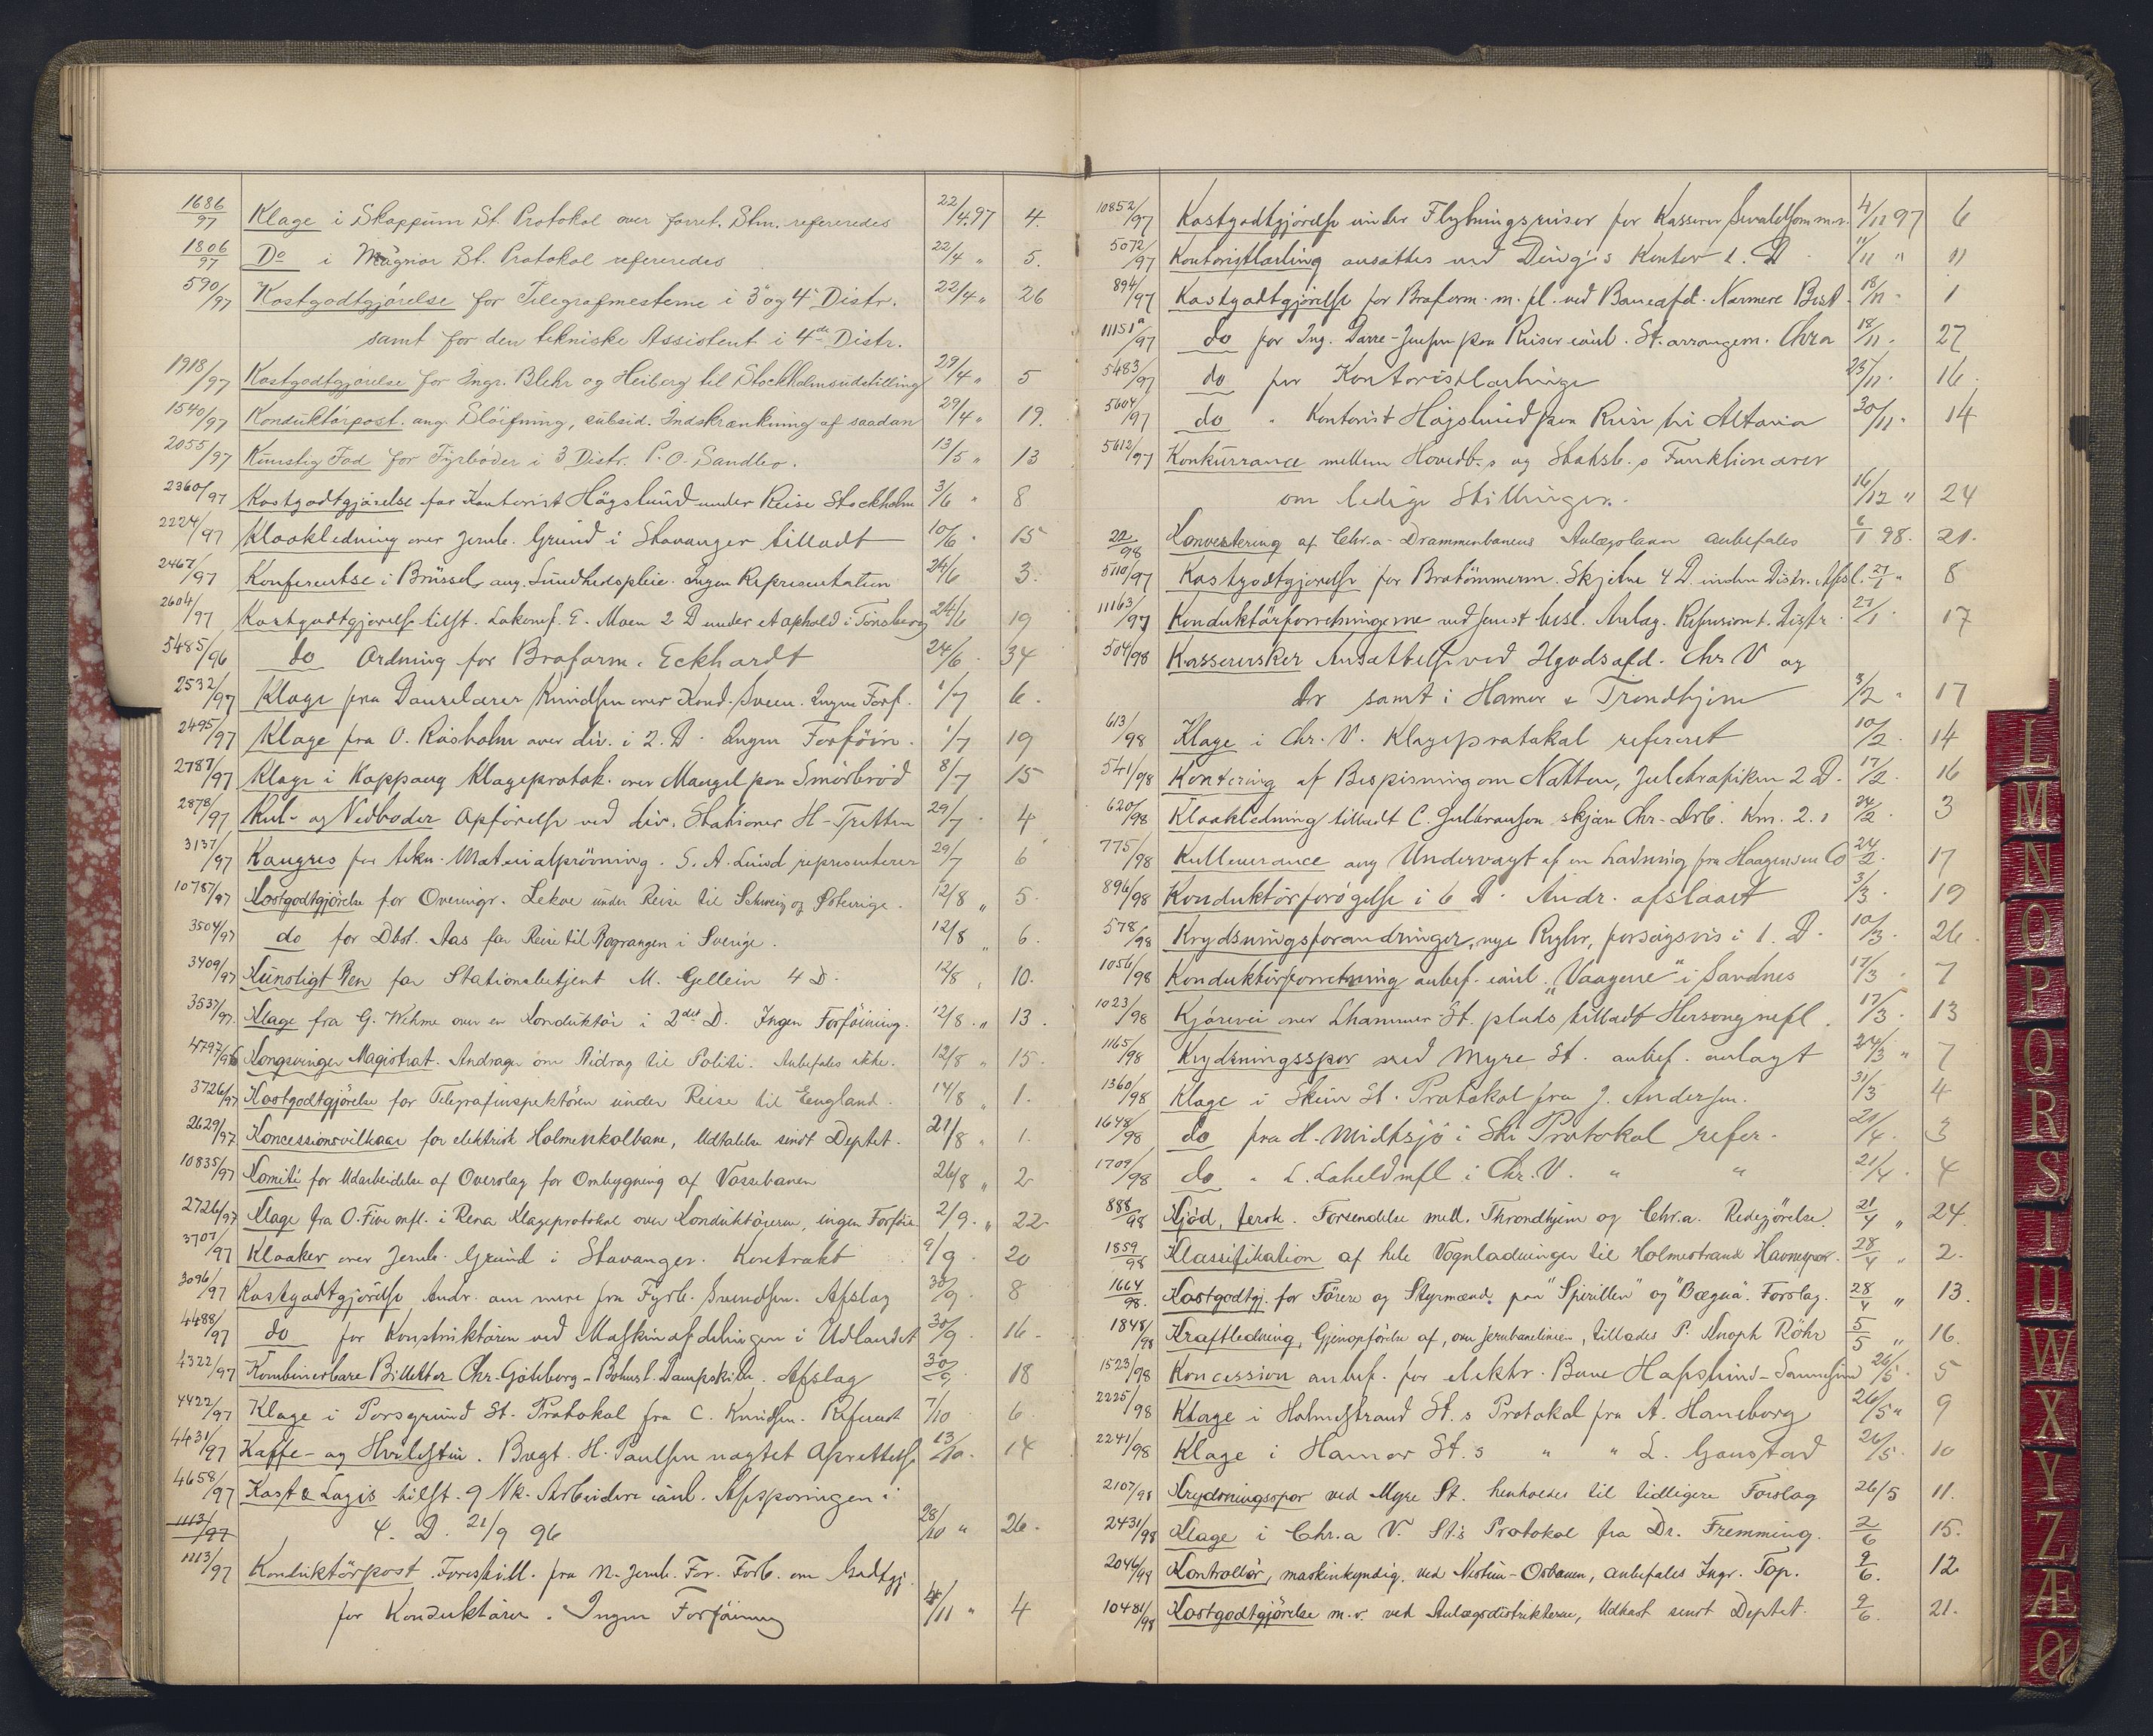 1686/97 Klage i Skoppum St. Protokol over forret. Stm. refereredes 22/4 97 4.
1806/97 Do i Magnor St. Protokol refereredes 22/4 " 5.
590/97 Kostgodtgjørelse for Telegrafmesterne i 3 og 4 Distr. 22/4 " 26
samt for den tekniske Assistent i 4de Distr.
1918/97 Kostgodtgjørelse for Ingr. Blehr og Heiberg til Stockholmsudstilling 29/4 " 5
1540/97 Konduktørpost. ang. Sløifning, subsid. Indskrænkning af saadan 29/4 " 19.
2055/97 Kunstig Fod for Fyrbøder i 3 Distr. P. O. Sandbo. 13/5 " 13
2360/97 Kostgodtgjørelse for Kontorist Høgslund under Reise Stockholm 3/6 " 8
2224/97 Kloakledning over Jernb. Grund i Stavanger tilladt 10/6 " 15
2467/97 Konferentse i Brüssel ang. Sundhedspleie. Ingen Representation 24/6 3.
2604/97 Kostgodtgjørelse tilst. Lokomf. E. Moen 2 D under et ophold i Tønsberg 24/6 19
5485/96 do Ordning for Broform. Eckhardt 24/6 34
2532/97 Klage fra Danselærer Knudsen over Kond. Sveen. Ingen Forf. 1/7 6.
2495/97 Klage fra O. Rasholm over div. i 2. D. Ingen Forføin. 1/7 19
2787/97 Klage i Koppang Klageprotok. over Mangel paa Smørbrød 8/7 15
2878/97 Kul- og Vedboder Opførelse ved div. Stationer H-Tretten 29/7 4
3137/97 Kongres for tekn. Materialprøvning. S. A. Lund representerer 29/7 6
10787/97 Kostgodtgjørelse for Overingr. Lekve under Reise til Schweiz og Østerrige. 12/8 " 5.
3504/97 do for Dbst. Aas for Reise til Rograngen i Sverige. 12/8 " 6.
3409/97 Kunstigt Ben for Stationsbetjent M. Gellein 4 D. 12/8 " 10.
3537/97 Klage fra G. Wehme over en Konduktør i 2det D. Ingen Forføining. 12/8 " 13.
4797/96 Kongsvinger Magistrat. Andrage om Bidrag til Politi. Anbefales ikke. 12/8 " 15.
3726/97 Kostgodtgjørelse for Telegrafinspektøren under Reise til England. 14/8 " 1.
2629/97 Koncessionsvilkaar for elektrisk Holmenkolbane, Udtalelse sendt Deptet. 21/8 " 1.
10835/97 Komité for Udarbeidelse af Overslag for Ombygning af Vossebanen 26/8 " 2
2726/97 Klage fra O. Five mfl. i Rena Klageprotokol over Konduktøren, ingen Forføin 2/9 " 22
3707/97 Kloaker over Jernb. Grund i Stavanger. Kontrakt 9/9 20
3096/97 Kostgodtgjørelse Andr. om mere fra Fyrb. Svendsen. Afslag 30/9 8
4488/97 do for Konstruktøren ved Maskinafdelingen i Udlandet 30/9 16
4322/97 Kombinerbare Billetter Chr.-Göteborg-Bohusl. Dampskibe. Afslag 30/9 18
4422/97 Klage i Porsgrund St. Protokol fra C. Knudsen. Refereret 7/10 6
4431/97 Kaffe- og Hvilestue. Bragt. H. Paulsen nægtet Oprettelse 13/10 14
4658/97 Kost & Logis tilst. 9 Nk. Arbeidere ianl. Afsporingen i
1113/97 4. D. 21/9 96 28/10 " 26.
1213/97 Konduktørpost. Forestill. fra N. Jernb. For. Forb. om Godtgj.
for Konduktører. Ingen Forføining 4/11 " 4
10852/97 Kostgodtgjørelse under Flytningsreiser for Kasserer Sivaldsson m.v. 4/11 97 6
5072/97 Kontoristlærling ansættes ved Deirg's Kontor 1. D. 11/11 " 11
894/97 Kostgodtgjørelse for Broform. m. fl. ved Baneafd. Nærmere Best. 18/11 1
11151a/97 do for Ing. Darre-Jensen paa Reiser ianl. St. arrangem. Chra 18/11 27
5483/97 do for Kontoristlærlinge 23/11 16.
5604/97 do " Kontorist Høgslund paa Reise til Altona 30/11 14
5612/97 Konkurrance mellem Hovedb.s og Statsb.s Funktionærer
om ledige Stillinger. 16/12 " 24
22/98 Konvertering af Chr.a-Drammenbanens Anlægslaan anbefales 6/1 98. 21.
5110/97 Kostgodtgjørelse for Brotømmerm. Skjelne 4 D. inden Distr. Afsl. 27/1 " 8
11163/97 Konduktørforretningerne ved Jernst. vesl. Anlæg. Refusion t. Distr. 27/1 17
504/98 Kassererskers Ansættelse ved Ilgodsafd. Chr. V og
Ør samt i Hamar & Trondhjem 3/2 " 17
613/98 Klage i Chr. V. Klageprotokol refereret 10/2 14
541/98 Kontering af Bespisning om Natten, Juletrafiken 2 D. 17/2 16
620/98 Kloakledning tilladt C. Gulbransen skjær Chr-Drb. Km. 2.1 24/2 3
775/98 Kulleverance ang Undervægt af en Ladning fra Haagensen Co 24/2 17
896/98 Konduktørforøgelse i 6 D. Andr. afslaaet 3/3 19
578/98 Krydsningsforandringer, nye Regler, forsøgsvis i 1. D. 10/3 26
1056/98 Konduktørforretning anbef. ianl. "Vaagene" i Sandnes 17/3 7
1023/98 Kjørevei over Lhammer St. plads tilladt Hersoug mfl. 17/3 13
1165/98 Krydsningsspor ved Myre St. anbef. anlagt 24/3 " 7
1360/98 Klage i Skien St. Protokol fra J. Andersen. 31/3 4
1648/98 do fra H. Midtsjø i Ski Protokol refer. 21/4 3
1709/98 do " L. Laheld mfl i Chr. V. " " 21/4 4
888/98 Kjød, fersk. Forsendelse mell. Throndhjem og Chr.a. Redegjørelse. 21/4 " 24.
1859/98 Klassifikation af hele Vognladninger til Holmestrand Havnespor. 28/4 " 2.
1664/98 Kostgodtgj. for Førere og Styrmænd. paa "Spirillen" og "Bægna". Forslag. 28/4 " 13.
1848/98 Kraftledning, Gjenopførelse af, over Jernbanelinien, tillades P. Knoph Röhr 5/5 " 16.
1523/98 Koncession anbef. for elektr. Bane Hafslund-Sannesund 26/5 5
2225/98 Klage i Holmestrand St.s Protokol fra A. Haneborg 26/5 " 9
2241/98 Klage i Hamar St.s " " L. Gaustad 26/5 10
2107/98 Krydsningsspor ved Myre St. henholdes til tidligere Forslag 26/5 11.
2431/98 Klage i Chr.a V. St.s Protokol fra Dr. Fremming. 2/6 15.
2046/98 Kontrollør, maskinkyndig, ved Nestun-Osbanen, anbefales Ingr. Top. 9/6. 12
10481/98 Kostgodtgjørelse m.v. ved Anlægsdistrikterne, Udkast sendt Deptet. 9/6. 21.
L
M
N
O
P
Q
R
S
T
U
W
X
Y
Z
Æ
Ø